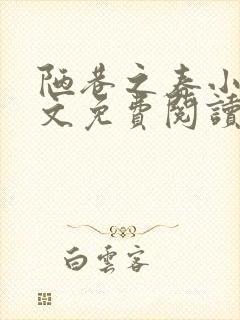 陋巷之春小
文免費閱讀
白雲客